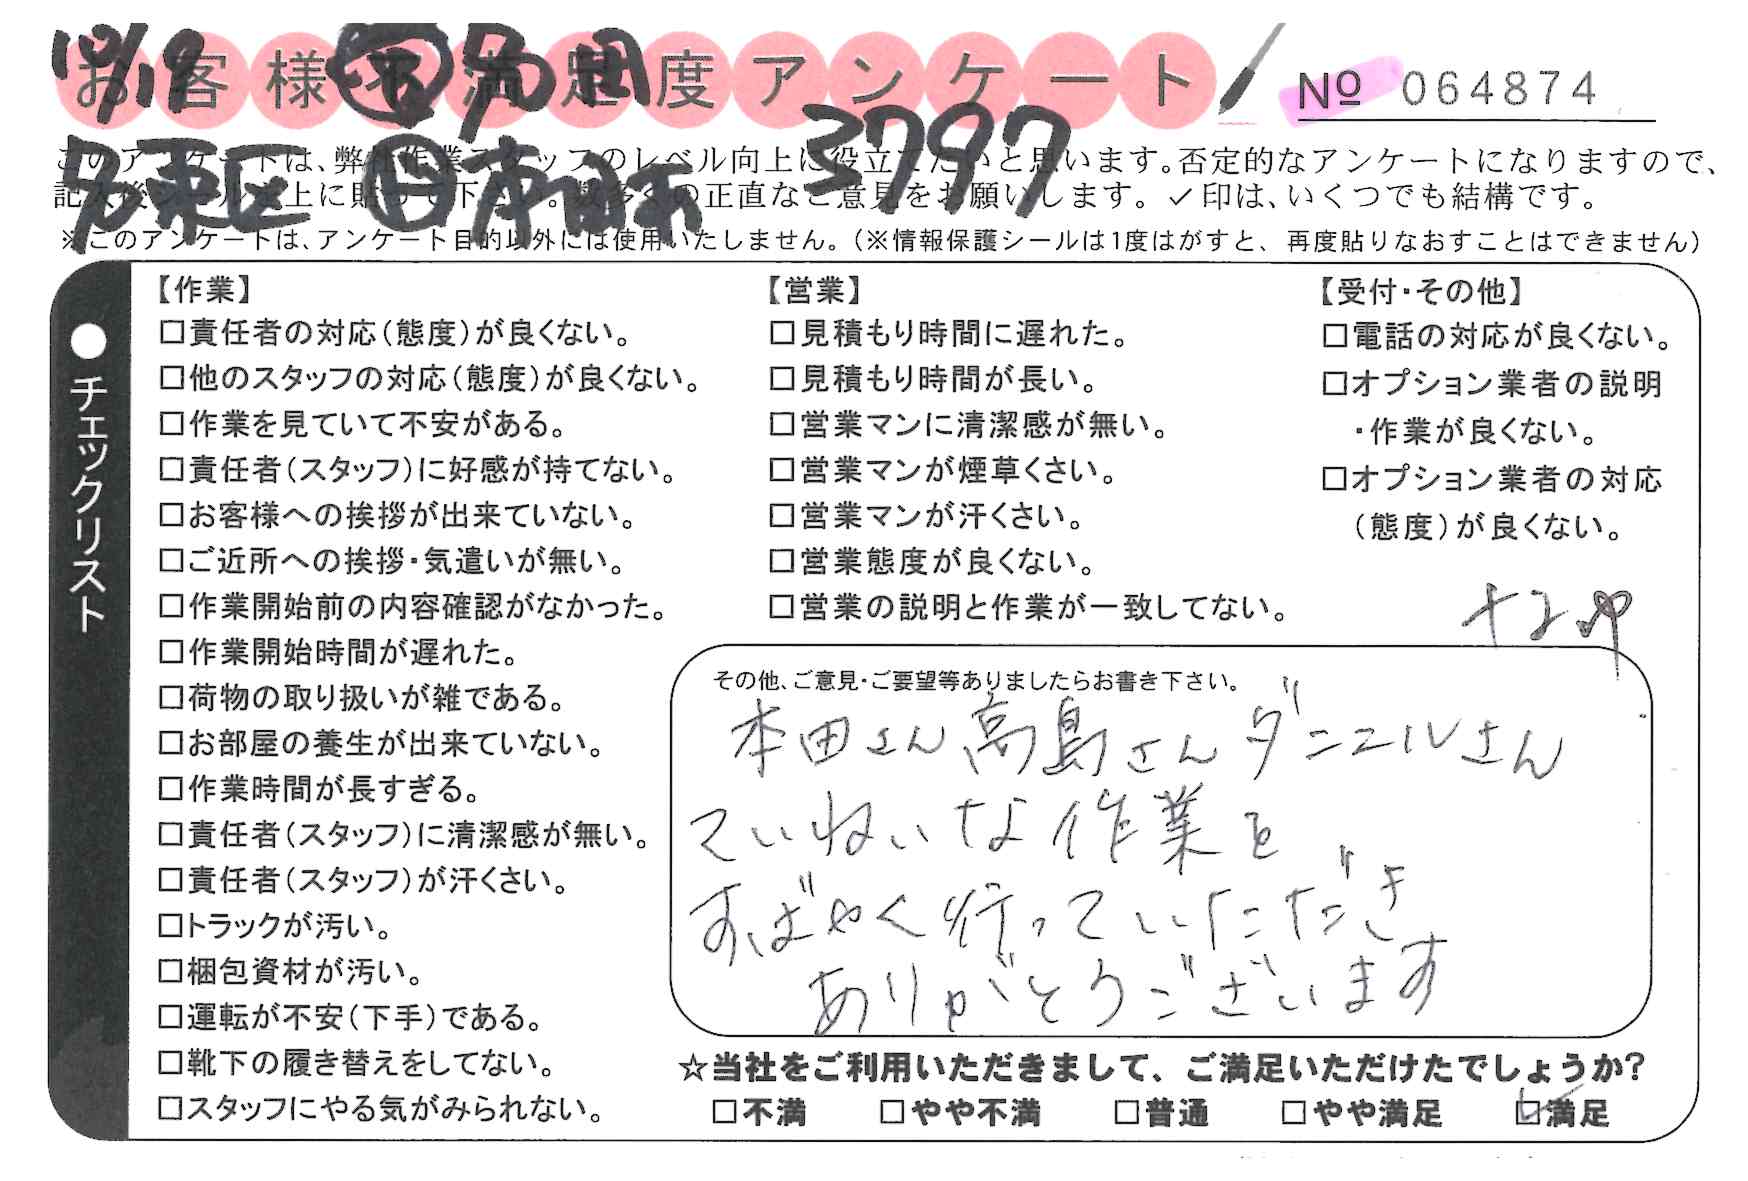 お客様不満足度アンケート
№ 064874
10/19
3797
このアンケートは、弊社作業スタッフのレベル向上に役立てたいと思います。否定的なアンケートになりますので、
記入後シールを上に貼って下さい。数多くの正直なご意見をお願いします。✓印は、いくつでも結構です。
※このアンケートは、アンケート目的以外には使用いたしません。（※情報保護シールは1度はがすと、再度貼りなおすことはできません）
●チェックリスト
【作業】
□責任者の対応（態度）が良くない。
□他のスタッフの対応（態度）が良くない。
□作業を見ていて不安がある。
□責任者（スタッフ）に好感が持てない。
□お客様への挨拶が出来ていない。
□ご近所への挨拶・気遣いが無い。
□作業開始前の内容確認がなかった。
□作業開始時間が遅れた。
□荷物の取り扱いが雑である。
□お部屋の養生が出来ていない。
□作業時間が長すぎる。
□責任者（スタッフ）に清潔感が無い。
□責任者（スタッフ）が汗くさい。
□トラックが汚い。
□梱包資材が汚い。
□運転が不安（下手）である。
□靴下の履き替えをしてない。
□スタッフにやる気がみられない。
【営業】
□見積もり時間に遅れた。
□見積もり時間が長い。
□営業マンに清潔感が無い。
□営業マンが煙草くさい。
□営業マンが汗くさい。
□営業態度が良くない。
□営業の説明と作業が一致してない。
【受付・その他】
□電話の対応が良くない。
□オプション業者の説明
・作業が良くない。
□オプション業者の対応
（態度）が良くない。
その他、ご意見・ご要望等ありましたらお書き下さい。
本田さん高島さんダニエルさん
ていねいな作業を
すばやく行っていただき
ありがとうございます
☆当社をご利用いただきまして、ご満足いただけたでしょうか?
□不満 □やや不満 □普通 □やや満足 ☑満足